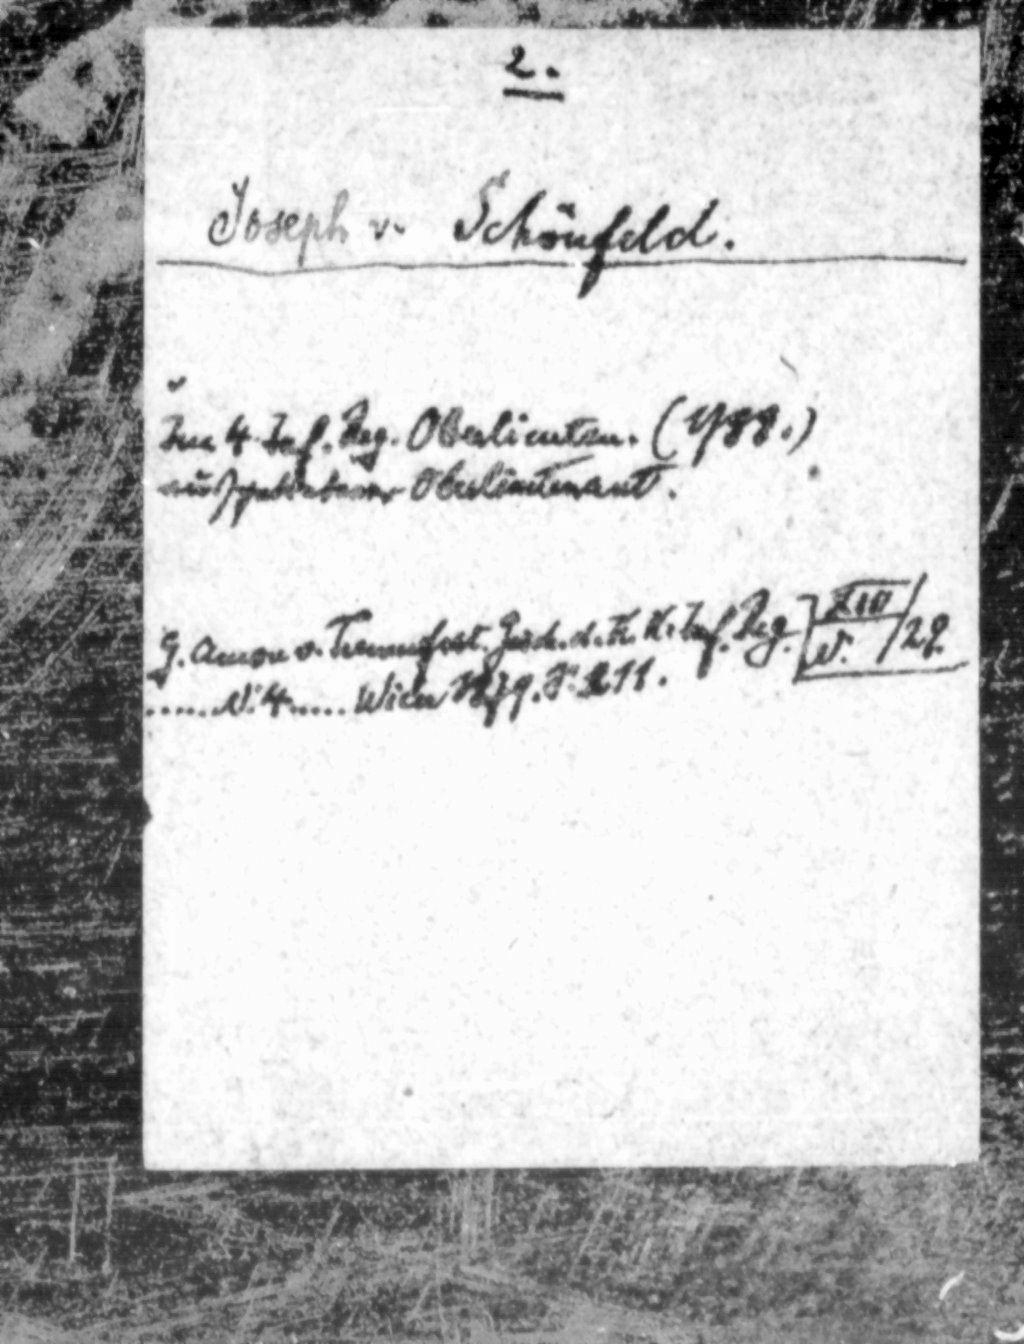 2.
Joseph v. Schönfeld.
Im 4. Inf. Reg. Oberlieuten. (1788.)
Oberlieutenant.
G. Amon v. Treuenfest. Gesch. d. K. K. Inf. Reg. XIII
..... N: 4 ..... Wien 1879. S. 211. V. / 29.